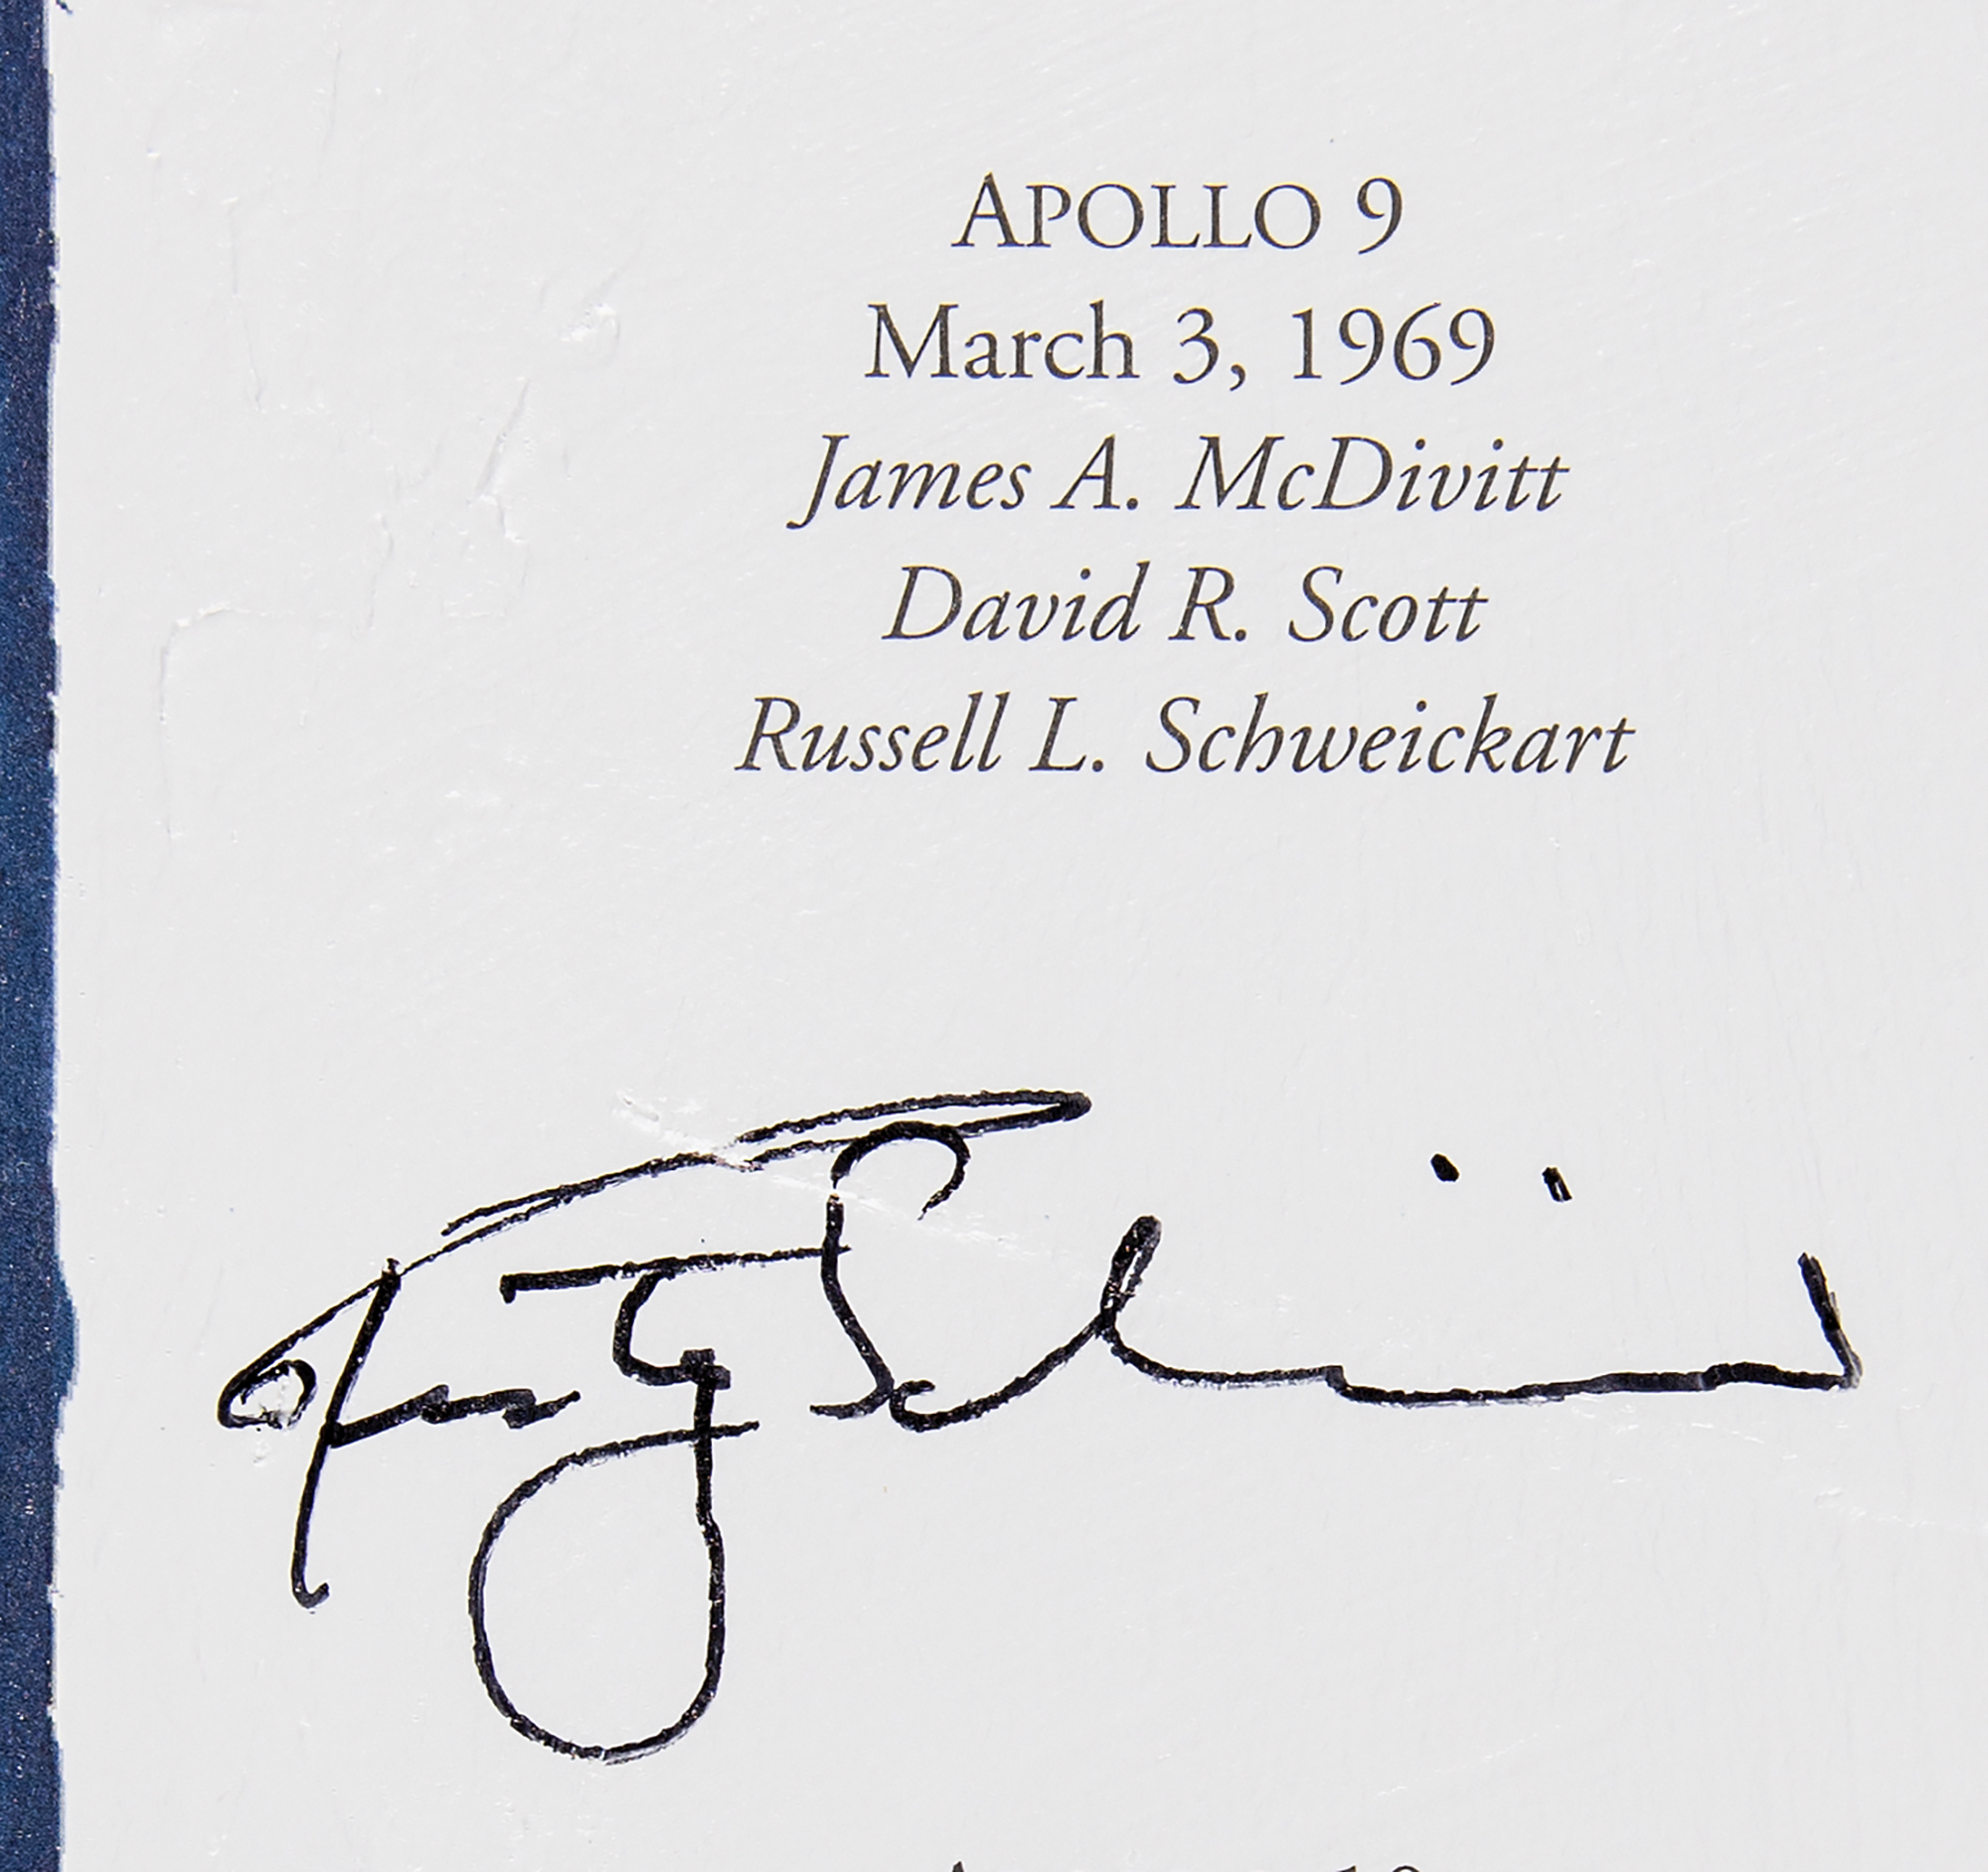 APOLLO 9
March 3, 1969
James A. McDivitt
David R. Scott
Russell L. Schweickart